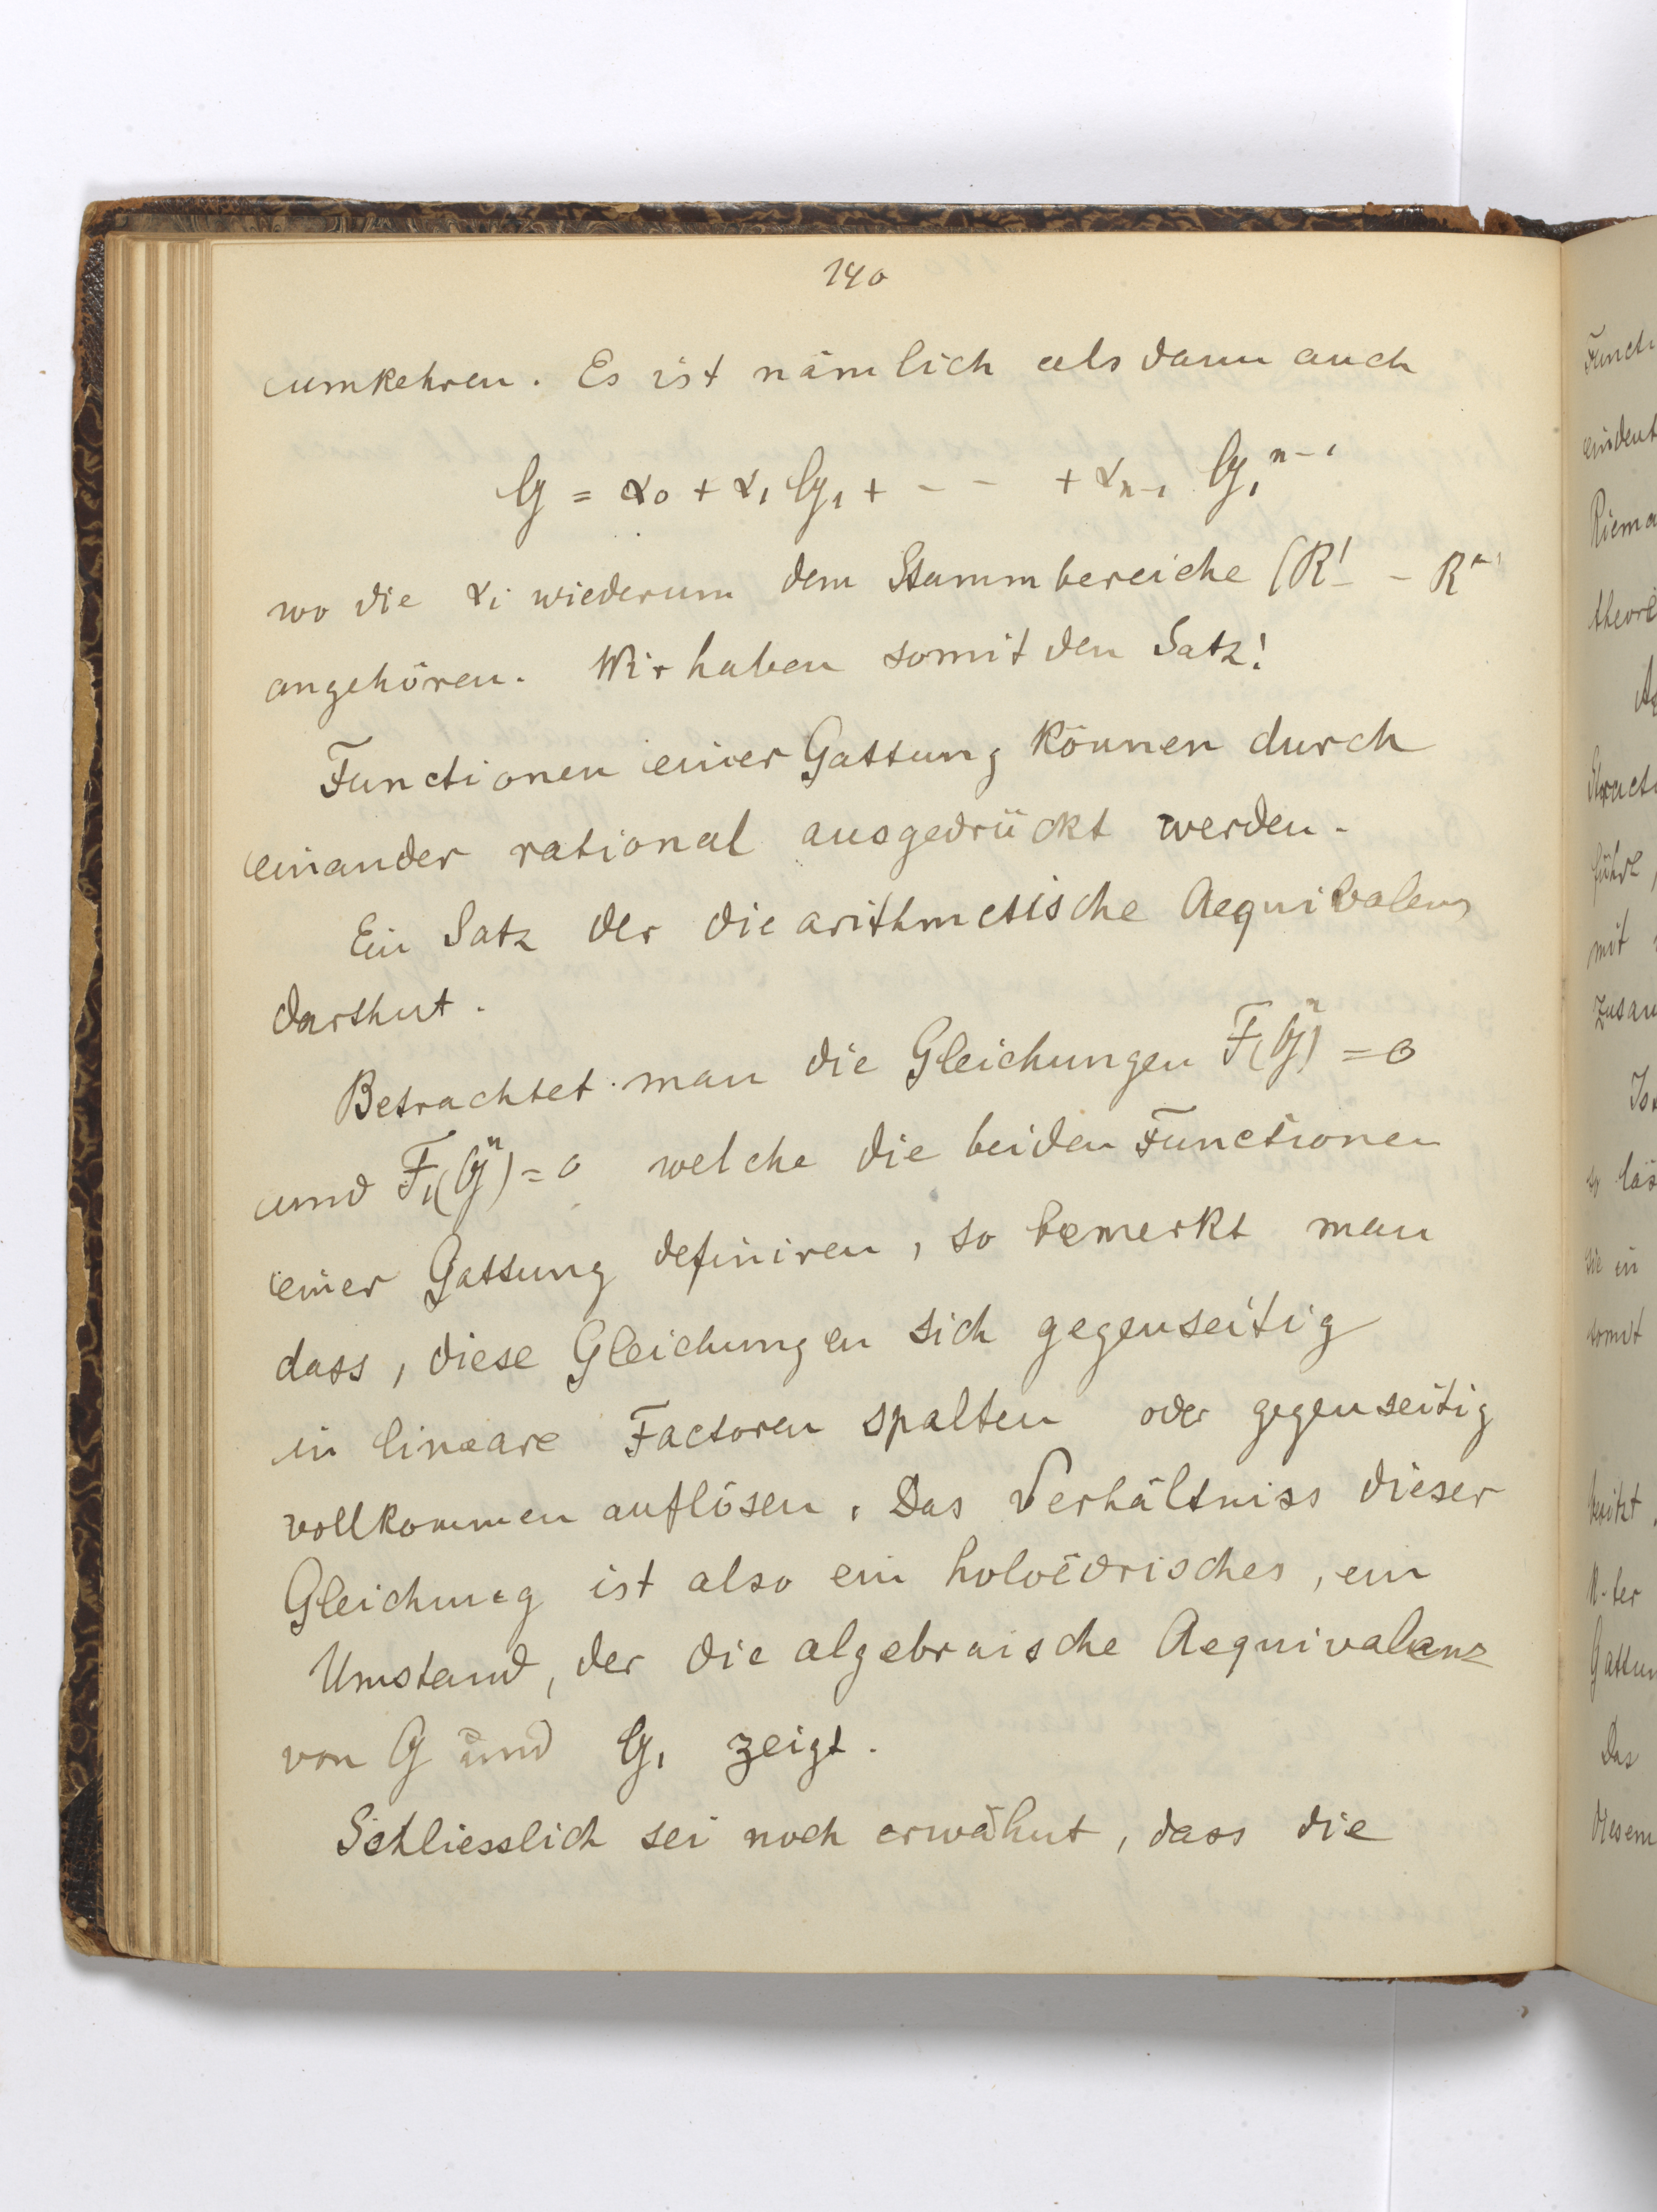 140
umkehren. Es ist nämlich alsdann auch
G = α₀ + α₁ G₁ + - - + αₙ₋₁ G₁ⁿ⁻¹
wo die αᵢ wiederum dem Stammbereiche (R' - - R
angehören. Wir haben somit den Satz:
Functionen einer Gattung können durch
einander rational ausgedrückt werden.
Ein Satz der die arithmetische Aequivalenz
darthut.
Betrachtet man die Gleichungen F(G) = 0
und F₁(G) = 0 welche die beiden Functionen
einer Gattung definiren, so bemerkt man
dass, diese Gleichungen sich gegenseitig
in lineare Factoren spalten oder gegenseitig
vollkommen auflösen. Das Verhältniss dieser
Gleichung ist also ein holoëdrisches, ein
Umstand, der die algebraische Aequivalenz
von G und G₁ zeigt.
Schliesslich sei noch erwähnt, dass die